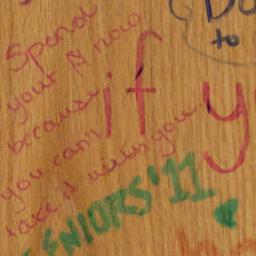 Spend
your $ now
because
you can't
take it with you.
if y
Do
to
SENIORS '11